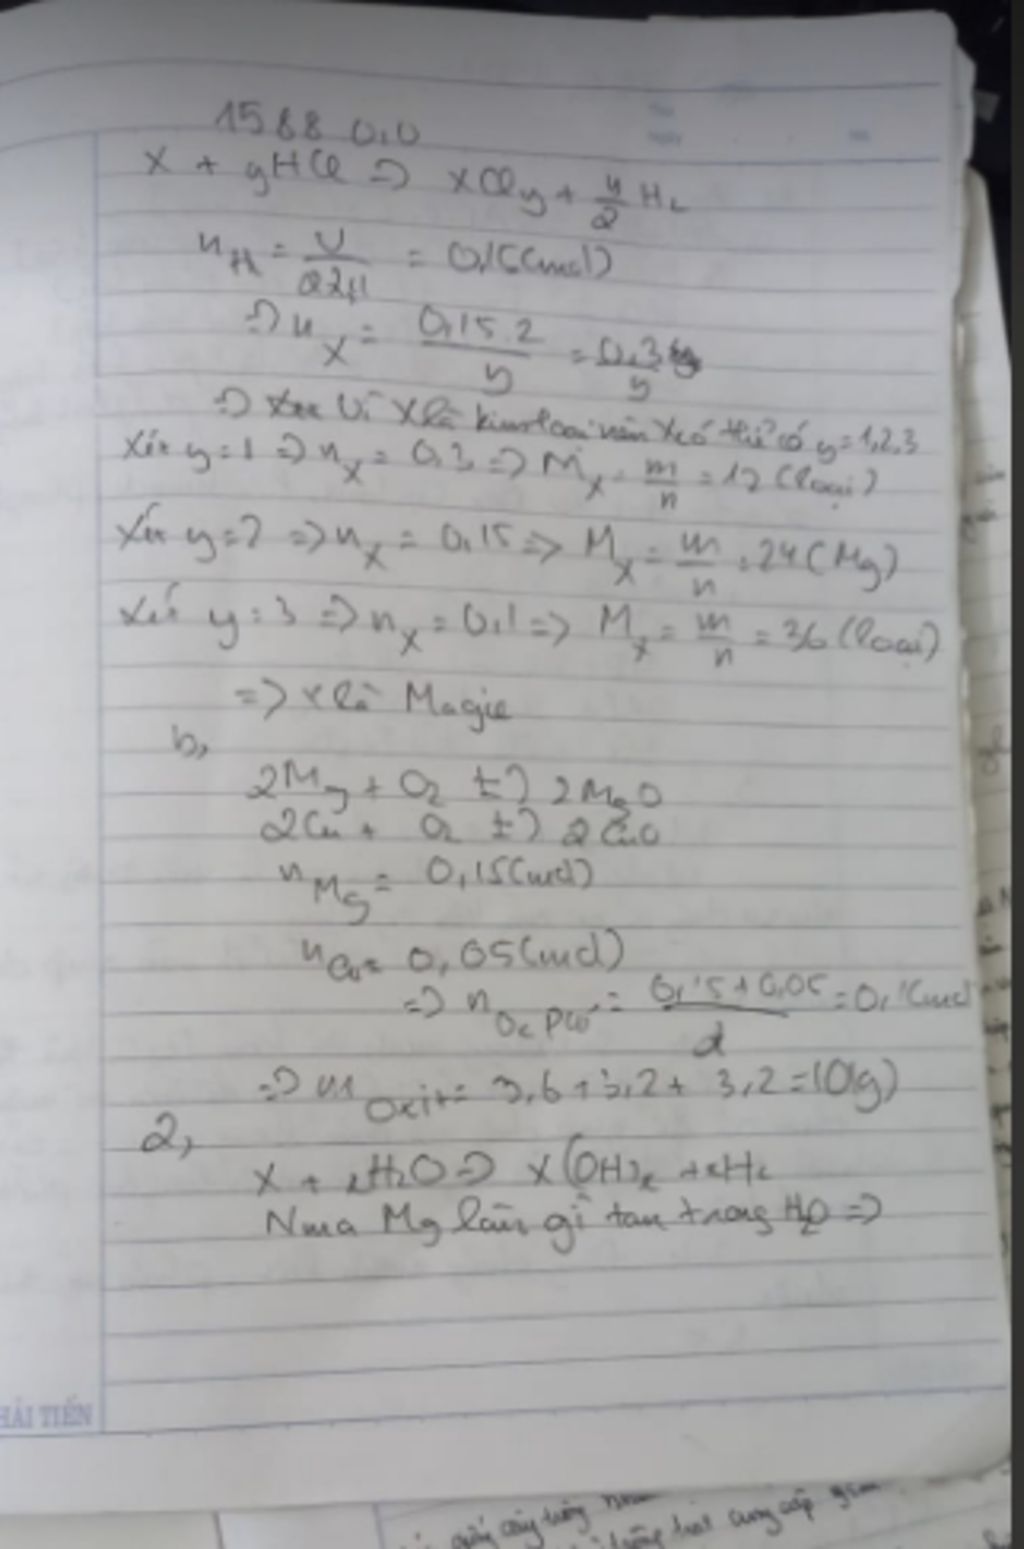 1588 0,0
X + yHCl => XCly + y/2 H2
nH = V/22,4 = 0,15(mol)
=> nX = 0,15.2/y = 0,3/y
=> Vì X là kim loại nên X có thể có y=1,2,3
Xét y=1 => nX = 0,3 => MX = m/n = 12 (loại)
Xét y=2 => nX = 0,15 => MX = m/n = 24 (Mg)
Xét y=3 => nX = 0,1 => MX = m/n = 36 (loại)
=> X là Magie
b,
2Mg + O2 t> 2MgO
2Cu + O2 t> 2CuO
nMg = 0,15(mol)
nCu = 0,05(mol)
=> nO2 pư = 0,15+0,05/2 = 0,1(mol
=> m Oxit = 3,6+3,2+3,2=10(g)
2,
X + xH2O => X(OH)x + xH2
Nma Mg làm gì tan trong H2O =>
HẢI TIẾN